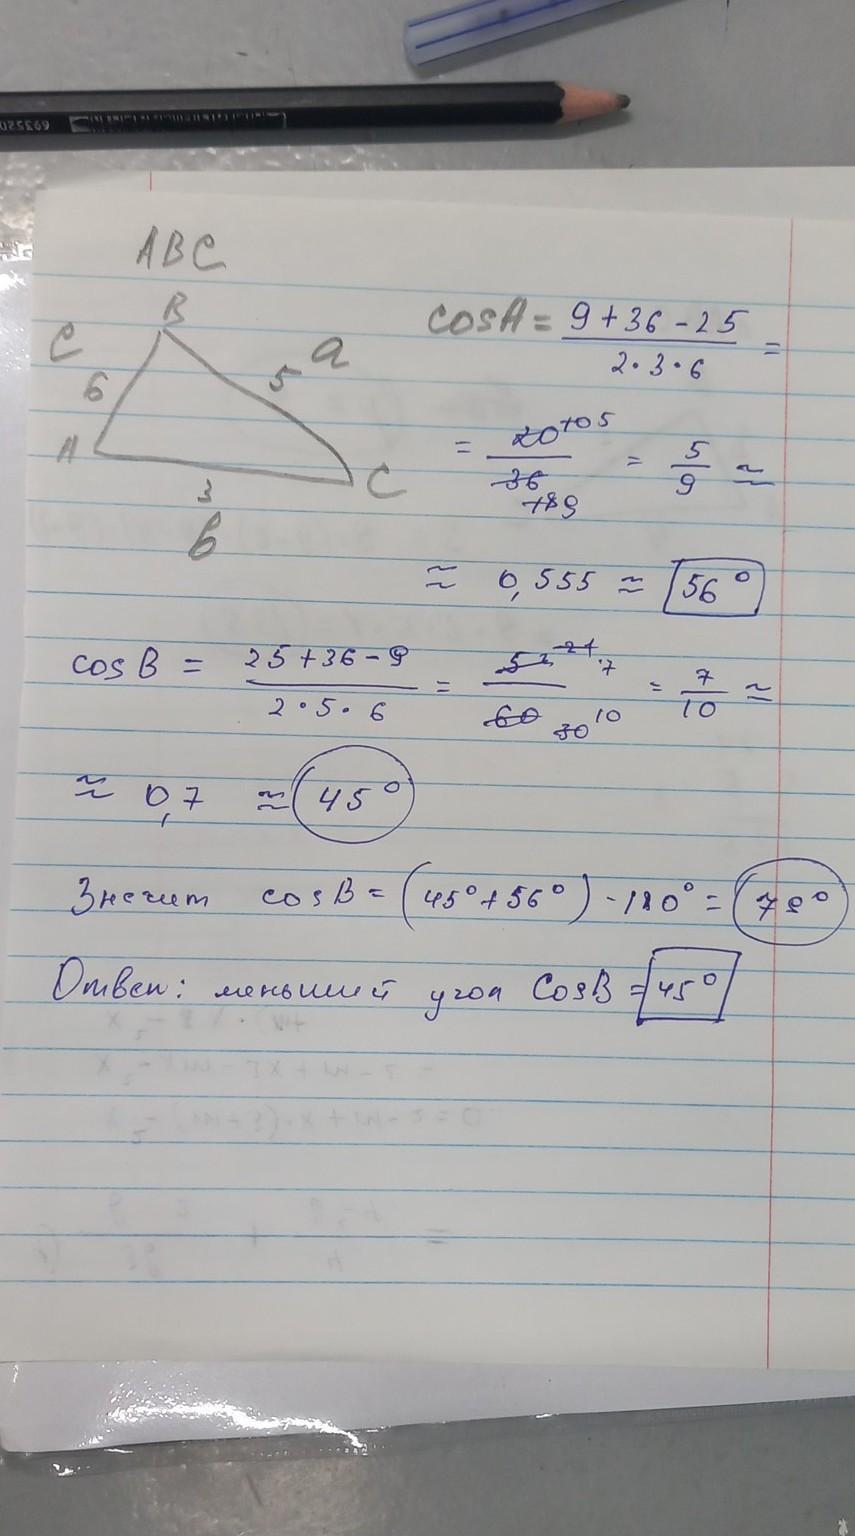 693520
ABC
B
C
6
5
a
A
C
3
b
cosA = 9+36-25 / 2·3·6 =
= 20 10 5 / 36 18 9 = 5/9 ≈
≈ 0,555 ≈ 56°
cosB = 25+36-9 / 2·5·6 = 52 21 7 / 60 30 10 = 7/10 ≈
≈ 0,7 ≈ 45°
Значит cosB = (45°+56°) - 180° = 79°
Ответ: меньший угол CosB = 45°